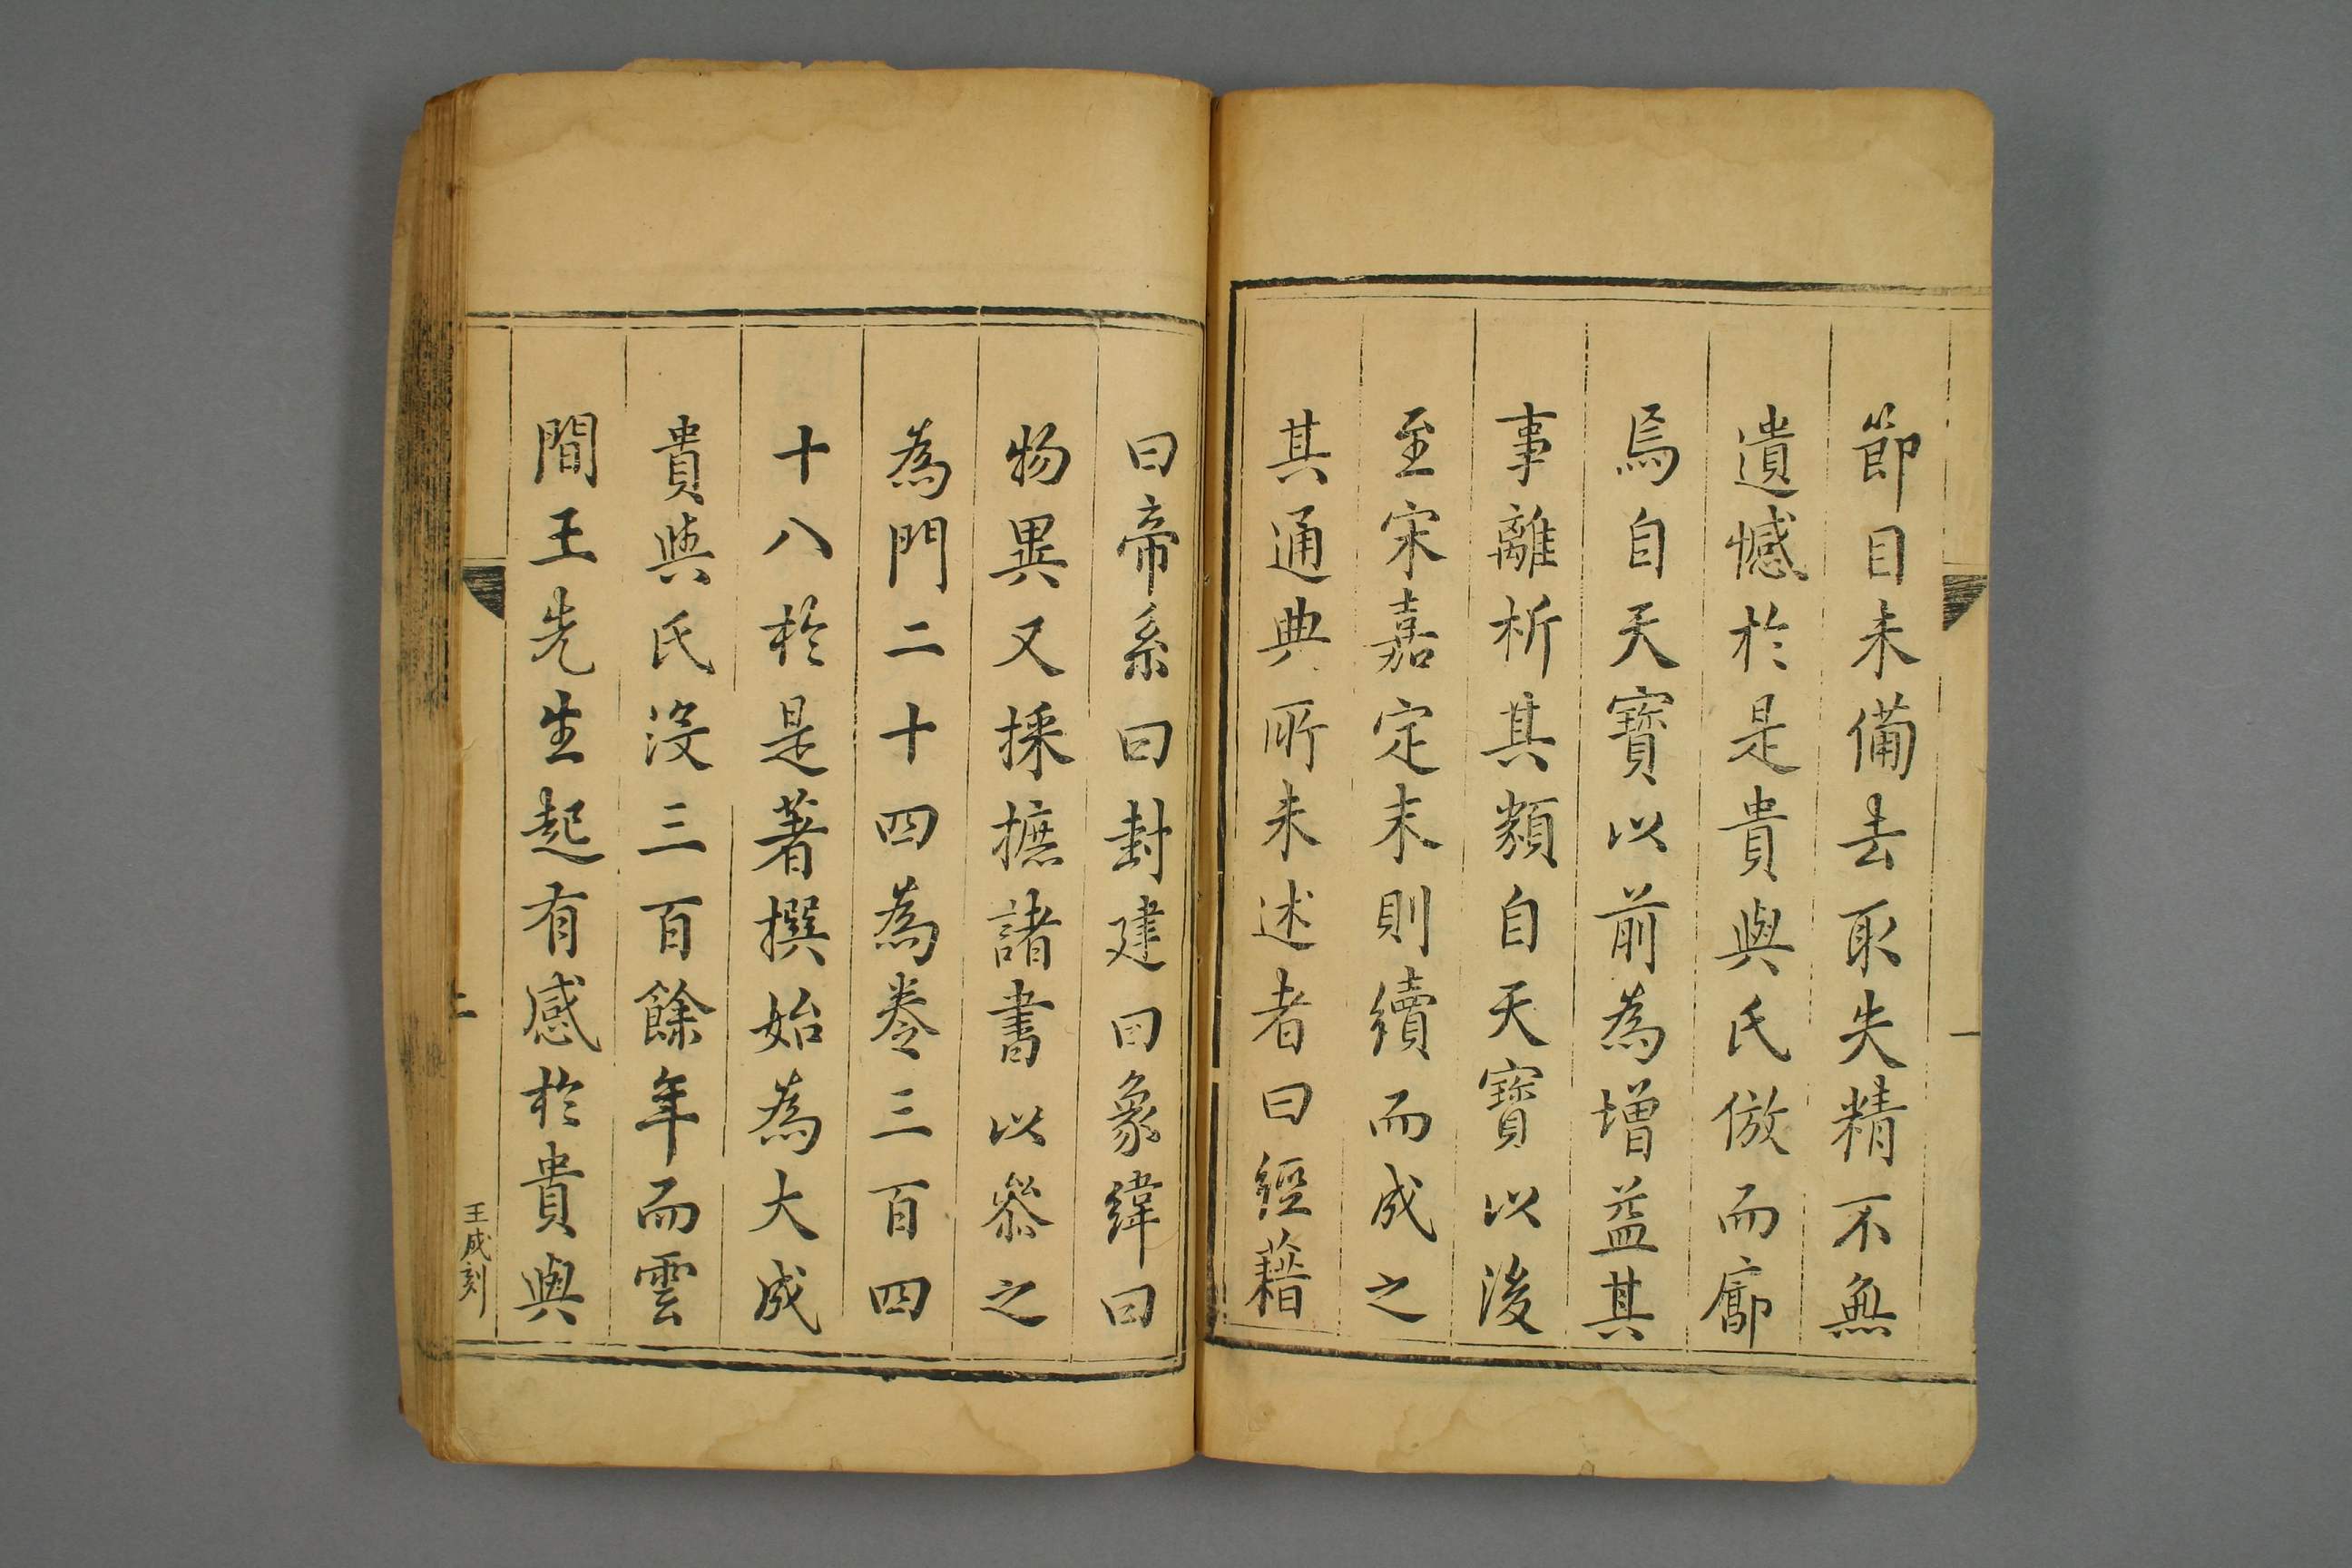 節目未備去取失精不無
遺憾於是貴與氏倣而廓
焉自天寶以前為增益其
事離析其類自天寶以後
至宋嘉定末則續而成之
其通典所未述者曰經籍
曰帝系曰封建曰象緯曰
物異又採摭諸書以叅之
為門二十四為卷三百四
十八於是著撰始為大成
貴與氏沒三百餘年而雲
間王先生起有感於貴與
王成刻